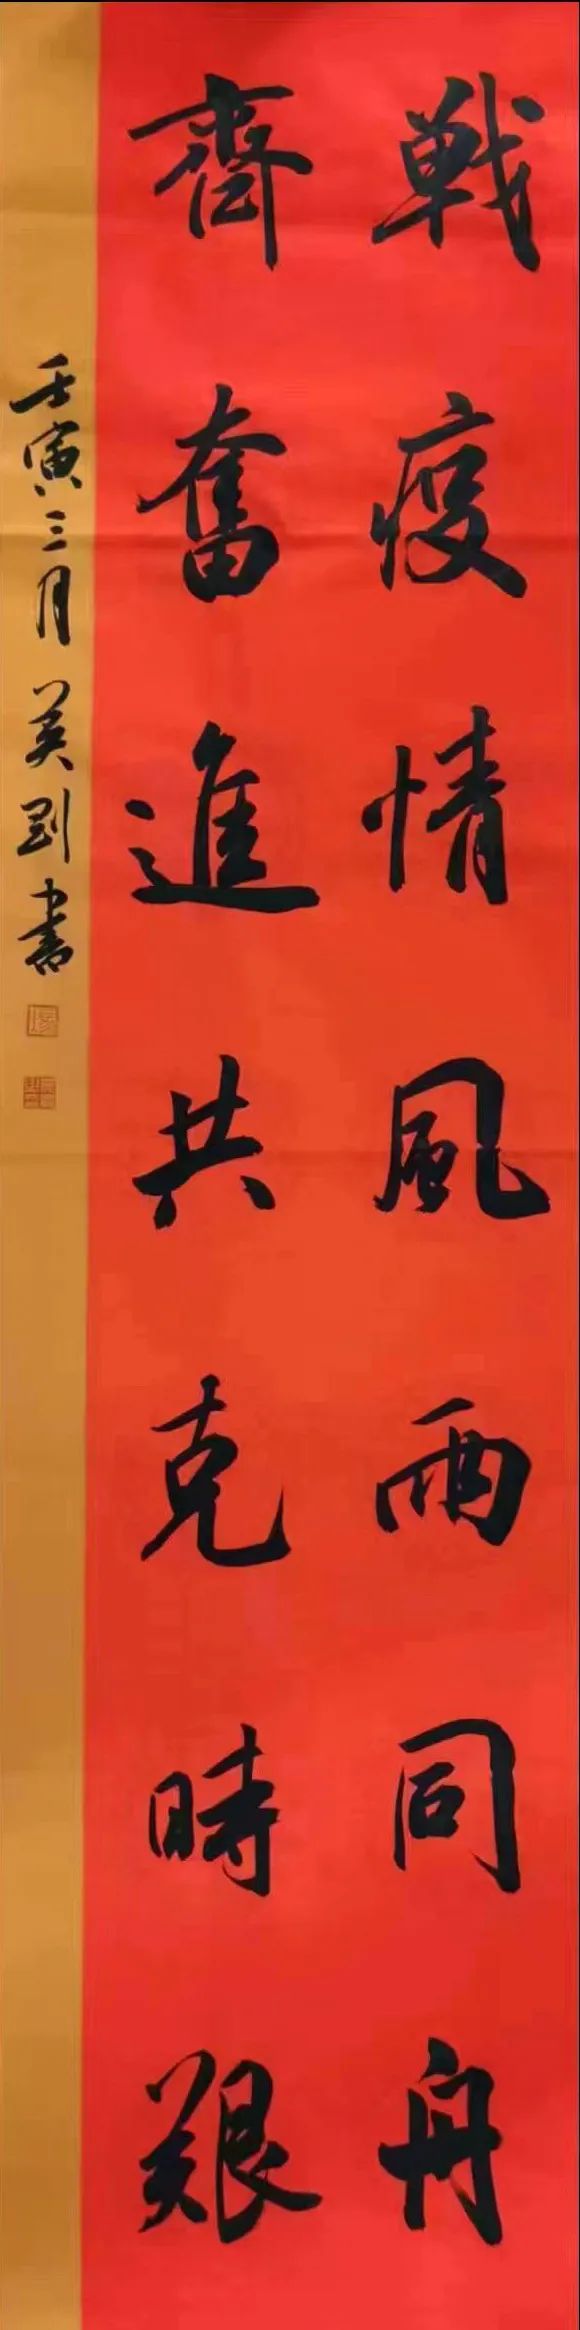 戰疫情風雨同舟
齊奮進共克時艱
壬寅三月英剛書